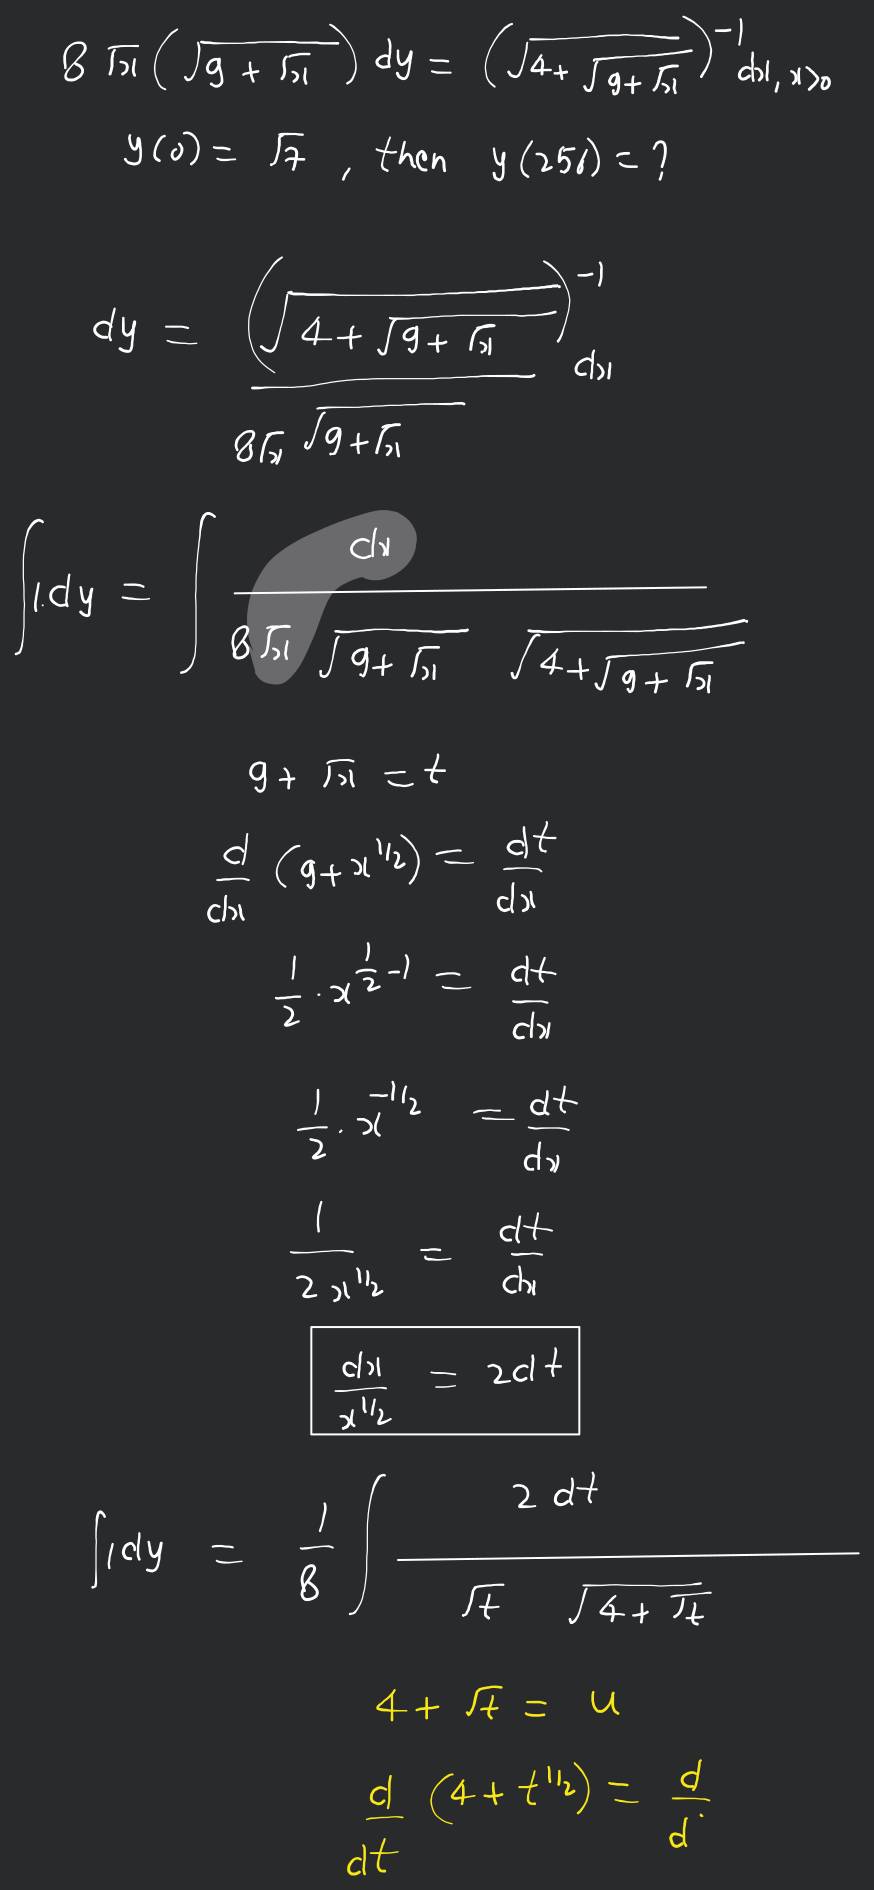 8√x (√(9 + √x)) dy = (√(4 + √(9 + √x)))⁻¹ dx, x>0
y(0) = √7 , then y(256) = ?
dy = (√(4 + √(9 + √x)))⁻¹ / (8√x √(9 + √x)) dx
∫1.dy = ∫ dx / (8√x √(9 + √x) √(4 + √(9 + √x)))
9 + √x = t
d/dx (9 + x^1/2) = dt/dx
1/2 · x^(1/2 - 1) = dt/dx
1/2 · x^-1/2 = dt/dx
1 / (2 x^1/2) = dt/dx
dx / x^1/2 = 2dt
∫1dy = 1/8 ∫ 2 dt / (√t √(4 + √t))
4 + √t = u
d/dt (4 + t^1/2) = d/d